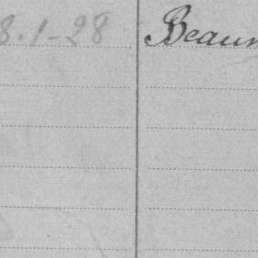 8.1-28 Beaum